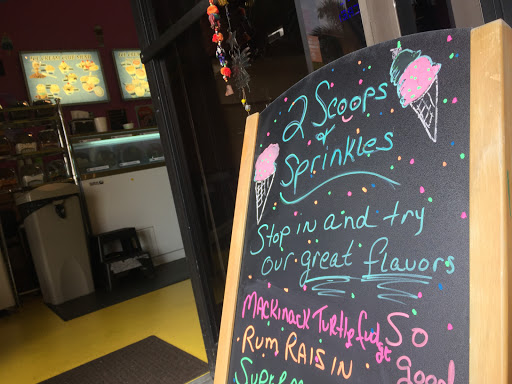 2 Scoops
&
Sprinkles
Stop in and try
our great flavors
Mackinack Turtle fudge
So good
Rum Raisin